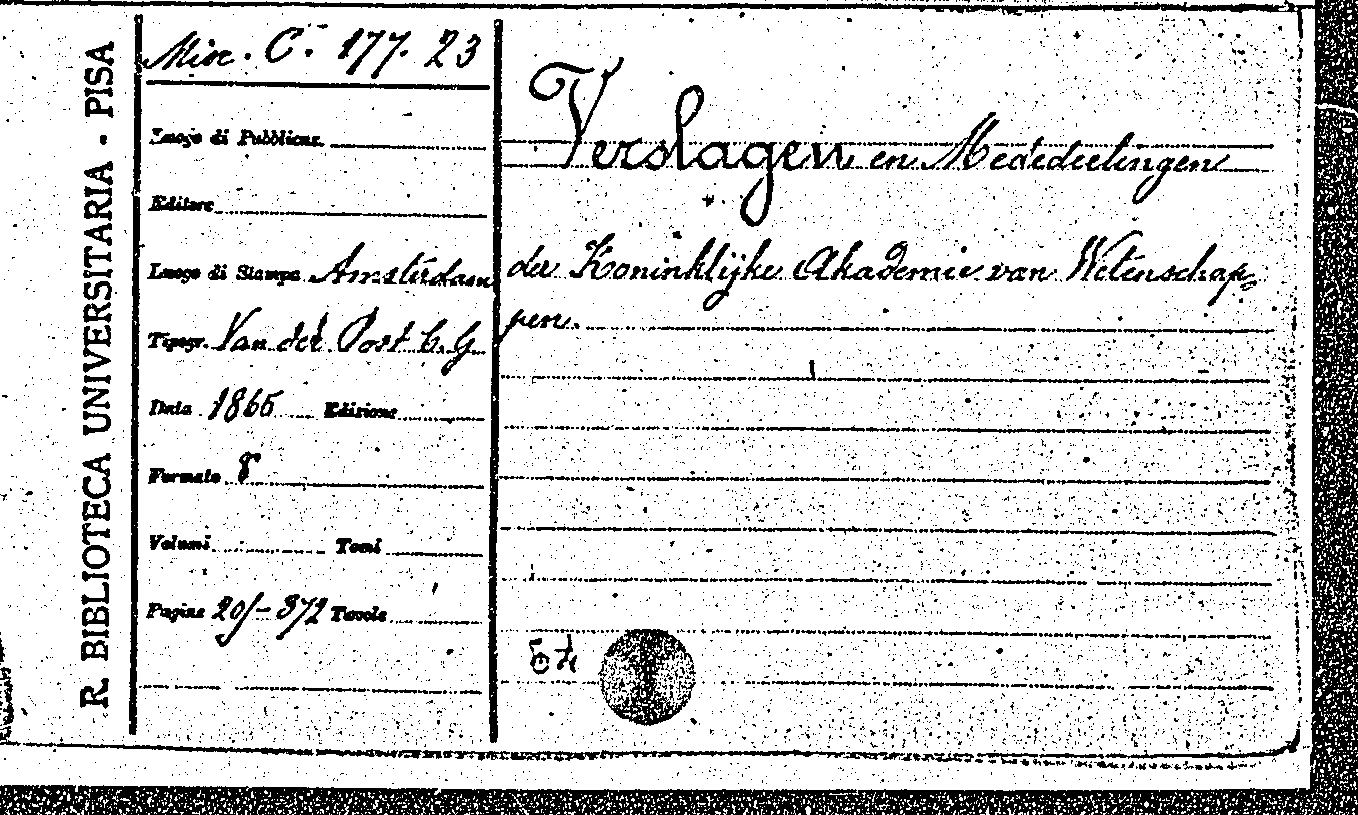 R. BIBLIOTECA UNIVERSITARIA - PISA
Misc. C. 177. 23
Luogo di Pubblicaz.
Editore
Luogo di Stampa Amsterdam
Tipogr. Van der Post C. G
Data 1865 Edizione
Formato 8°
Volumi Tomi
Pagine 201-372 Tavole
Verslagen en Mededeelingen
der Koninklijke Akademie van Wetenschap=
pen.